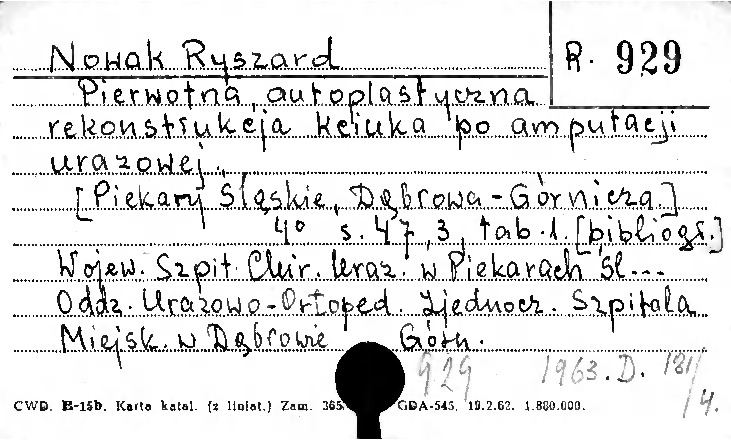 Nowak Ryszard
R. 929
Pierwotna autoplastyczna
rekonstrukcja kciuka po amputacji
urazowej.
[Piekary Śląskie, Dąbrowa-Górnicza.]
4° s. 47, 3, tab. 1. [bibliogr.]
Wojew. Szpit. Chir. Uraz. w Piekarach Śl...
Oddz. Urazowo-Ortoped. Zjednocz. Szpitala
Miejsk. w Dąbrowie Górn.
929 1963. D. 181/4.
CWD. E-15b. Karta katal. (z liniat.) Zam. 365 GDA-545, 19.2.62. 1.880.000.